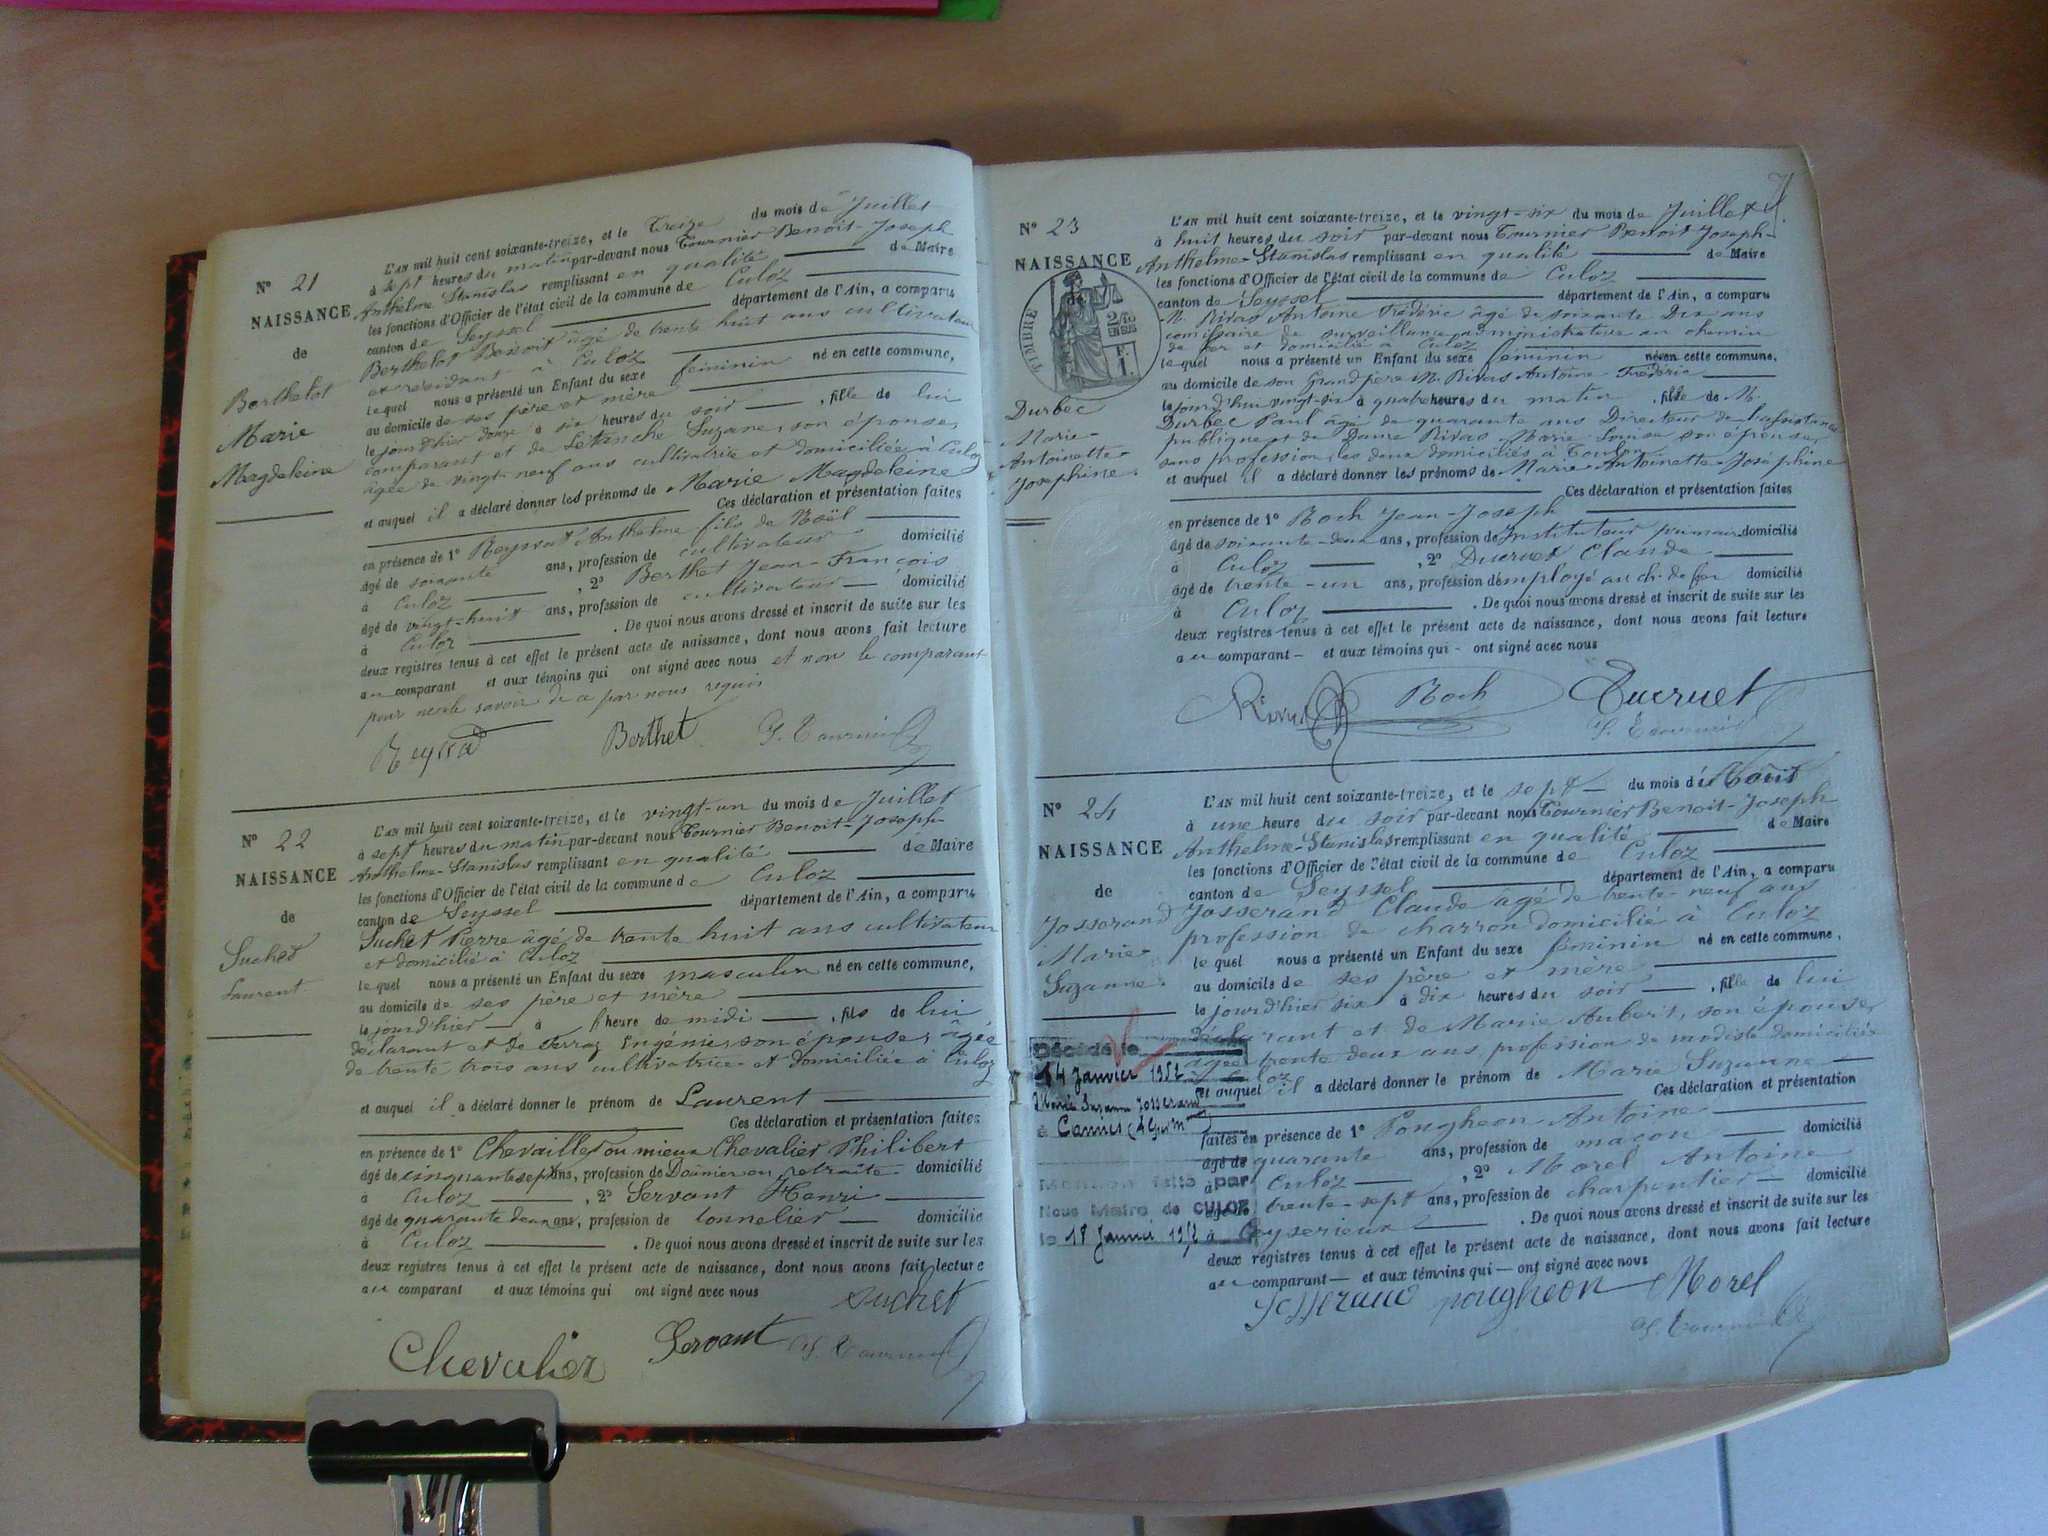 N° 21
NAISSANCE
de
Berthelot
Marie
Magdeleine
L'AN mil huit cent soixante-treize, et le Treize du mois de Juillet
à sept heures du matin par-devant nous Tournier Benoit-Joseph
Anthelme Stanislas remplissant en qualité de Maire
les fonctions d'Officier de l'état civil de la commune de Culoz
canton de Seyssel département de l'Ain, a comparu
Berthelot Benoit âgé de trente huit ans cultivateur
et residant à Culoz
lequel nous a présenté un Enfant du sexe féminin né en cette commune,
au domicile de ses père et mère
le jourd'hier douze à six heures du soir , fille de lui
comparant et de Létanche Suzane, son épouse,
âgée de vingt-neuf ans cultivatrice et domiciliée à Culoz
et auquel il a déclaré donner les prénoms de Marie Magdeleine
Ces déclaration et présentation faites
en présence de 1° Reyrat Anthelme fils de Noël
âgé de soixante ans, profession de cultivateur domicilié
à Culoz , 2° Berthet Jean-François
âgé de vingt-huit ans, profession de cultivateur domicilié
à Culoz . De quoi nous avons dressé et inscrit de suite sur les
deux registres tenus à cet effet le présent acte de naissance, dont nous avons fait lecture
au comparant et aux témoins qui ont signé avec nous et non le comparant
pour ne le savoir de ce par nous requis
Berthet
N° 22
NAISSANCE
de
Suchet
Laurent
L'AN mil huit cent soixante-treize, et le vingt-un du mois de Juillet
à sept heures du matin par-devant nous Tournier Benoit-Joseph-
Anthelme-Stanislas remplissant en qualité de Maire
les fonctions d'Officier de l'état civil de la commune de Culoz
canton de Seyssel département de l'Ain, a comparu
Suchet Pierre âgé de trente huit ans cultivateur
et domicilié à Culoz
lequel nous a présenté un Enfant du sexe masculin né en cette commune,
au domicile de ses père et mère
le jourd'hier à l'heure de midi , fils de lui
déclarant et de Serraz son épouse, âgée
de trente trois ans cultivatrice et domiciliée à Culoz
et auquel il a déclaré donner le prénom de Laurent
Ces déclaration et présentation faites
en présence de 1° Chevaillet ou mieux Chevalier Philibert
âgé de cinquante sept ans, profession de Douanier en retraite domicilié
à Culoz , 2° Servant Henri
âgé de quarante deux ans, profession de tonnelier domicilié
à Culoz . De quoi nous avons dressé et inscrit de suite sur les
deux registres tenus à cet effet le présent acte de naissance, dont nous avons fait lecture
au comparant et aux témoins qui ont signé avec nous
Suchet
Chevalier Servant
N° 23
NAISSANCE
de
TIMBRE
2/10 EN SUS
F.
1.
Durbec
Marie-
Antoinette-
Josephine
L'AN mil huit cent soixante-treize, et le vingt-six du mois de Juillet
à huit heures du soir par-devant nous Tournier Benoit Joseph-
Anthelme-Stanislas remplissant en qualité de Maire
les fonctions d'Officier de l'état civil de la commune de Culoz
canton de Seyssel département de l'Ain, a comparu
M. Rivas Antoine Frédéric âgé de soixante Dix ans
comissaire de surveillance administrative au chemin
de fer et domicilié à Culoz
lequel nous a présenté un Enfant du sexe féminin né en cette commune.
au domicile de son Grand père M. Rivas Antoine Frédéric
le jourd'hui vingt-six à quatre heures du matin , fille de M.
Durbec Paul âgé de quarante ans Directeur de l'assistance
publique et de Dame Rivas Marie Louise son épouse
sans profession, les deux domiciliés à Toulon
et auquel il a déclaré donner les prénoms de Marie-Antoinette-Joséphine
Ces déclaration et présentation faites
en présence de 1° Roch Jean-Joseph
âgé de soixante-deux ans, profession de Instituteur primaire domicilié
à Culoz , 2° Ducruet Claude
âgé de trente-un ans, profession d'employé au ch. de fer domicilié
à Culoz . De quoi nous avons dressé et inscrit de suite sur les
deux registres tenus à cet effet le présent acte de naissance, dont nous avons fait lecture
au comparant et aux témoins qui ont signé avec nous
Roch Ducruet
N° 24
NAISSANCE
de
Josserand
Marie-
Suzanne
Décédé le
14 Janvier 1952
Marie Suzanne Josserand
à Cannes
Mention faite par
Nous Maire de CULOZ
le 18 Janvier 1952
L'AN mil huit cent soixante-treize, et le sept du mois d'Août
à une heure du soir par-devant nous Tournier Benoit-Joseph
Anthelme-Stanislas remplissant en qualité de Maire
les fonctions d'Officier de l'état civil de la commune de Culoz
canton de Seyssel département de l'Ain, a comparu
Josserand Claude âgé de trente-neuf ans
profession de charron domicilié à Culoz
lequel nous a présenté un Enfant du sexe féminin né en cette commune,
au domicile de ses père et mère
le jourd'hier six à dix heures du soir , fille de lui
déclarant et de Marie Aubert, son épouse,
âgée trente deux ans, profession de modiste domiciliée
à Culoz
et auquel il a déclaré donner le prénom de Marie Suzanne
Ces déclaration et présentation
faites en présence de 1° Pongheon Antoine
âgé de quarante ans, profession de maçon domicilié
à Culoz , 2° Morel Antoine
âgé de trente-sept ans, profession de charpentier domicilié
à Ceyzerieux . De quoi nous avons dressé et inscrit de suite sur les
deux registres tenus à cet effet le présent acte de naissance, dont nous avons fait lecture
au comparant et aux témoins qui ont signé avec nous
Josserand pongheon Morel